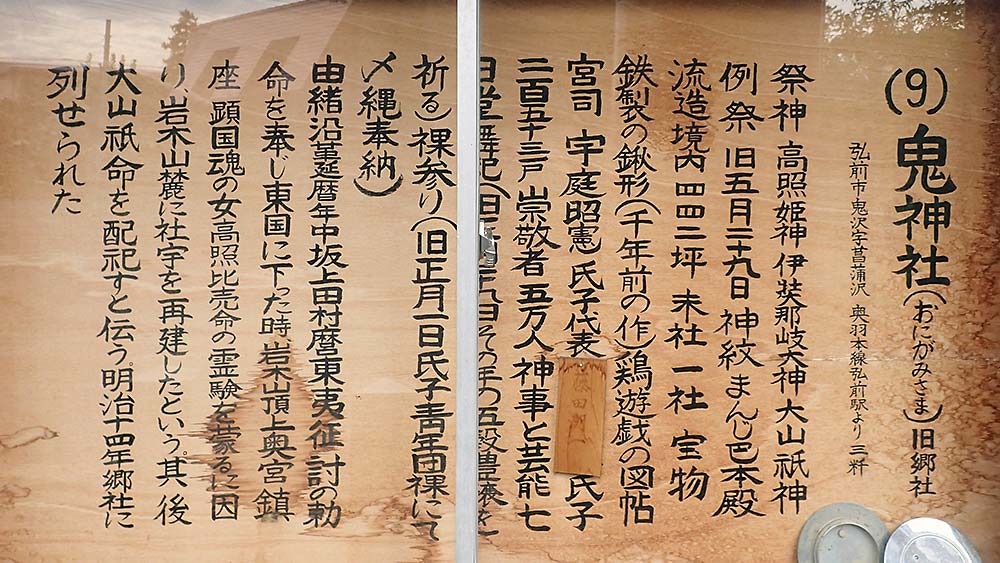 (9)鬼神社(おにがみさま)旧郷社
弘前市鬼沢字菖蒲沢 奥羽本線弘前駅より三粁
祭神 高照姫神 伊弉那岐大神 大山祇神
例祭 旧五月二十九日 神紋 まんじ巴 本殿
流造 境内四四二坪 末社 一社 宝物
鉄製の鍬形(千年前の作)鶏遊戯の図帖
宮司 宇庭昭憲 氏子代表 氏子
二百五十三戸 崇敬者 五万人 神事と芸能 七
日堂舞紀(旧正月 日その年の五穀豊穣を
祈る)裸参り(旧正月一日氏子青年団裸にて
〆縄奉納)
由緒沿革延暦年中坂上田村麿東夷征討の勅
命を奉じ東国に下った時、岩木山頂上奥宮鎮
座 顕国魂の女高照比売命の霊験を蒙るに因
り、岩木山麓に社宇を再建したという。其後
大山祇命を配祀すと伝う。明治十四年郷社に
列せられた